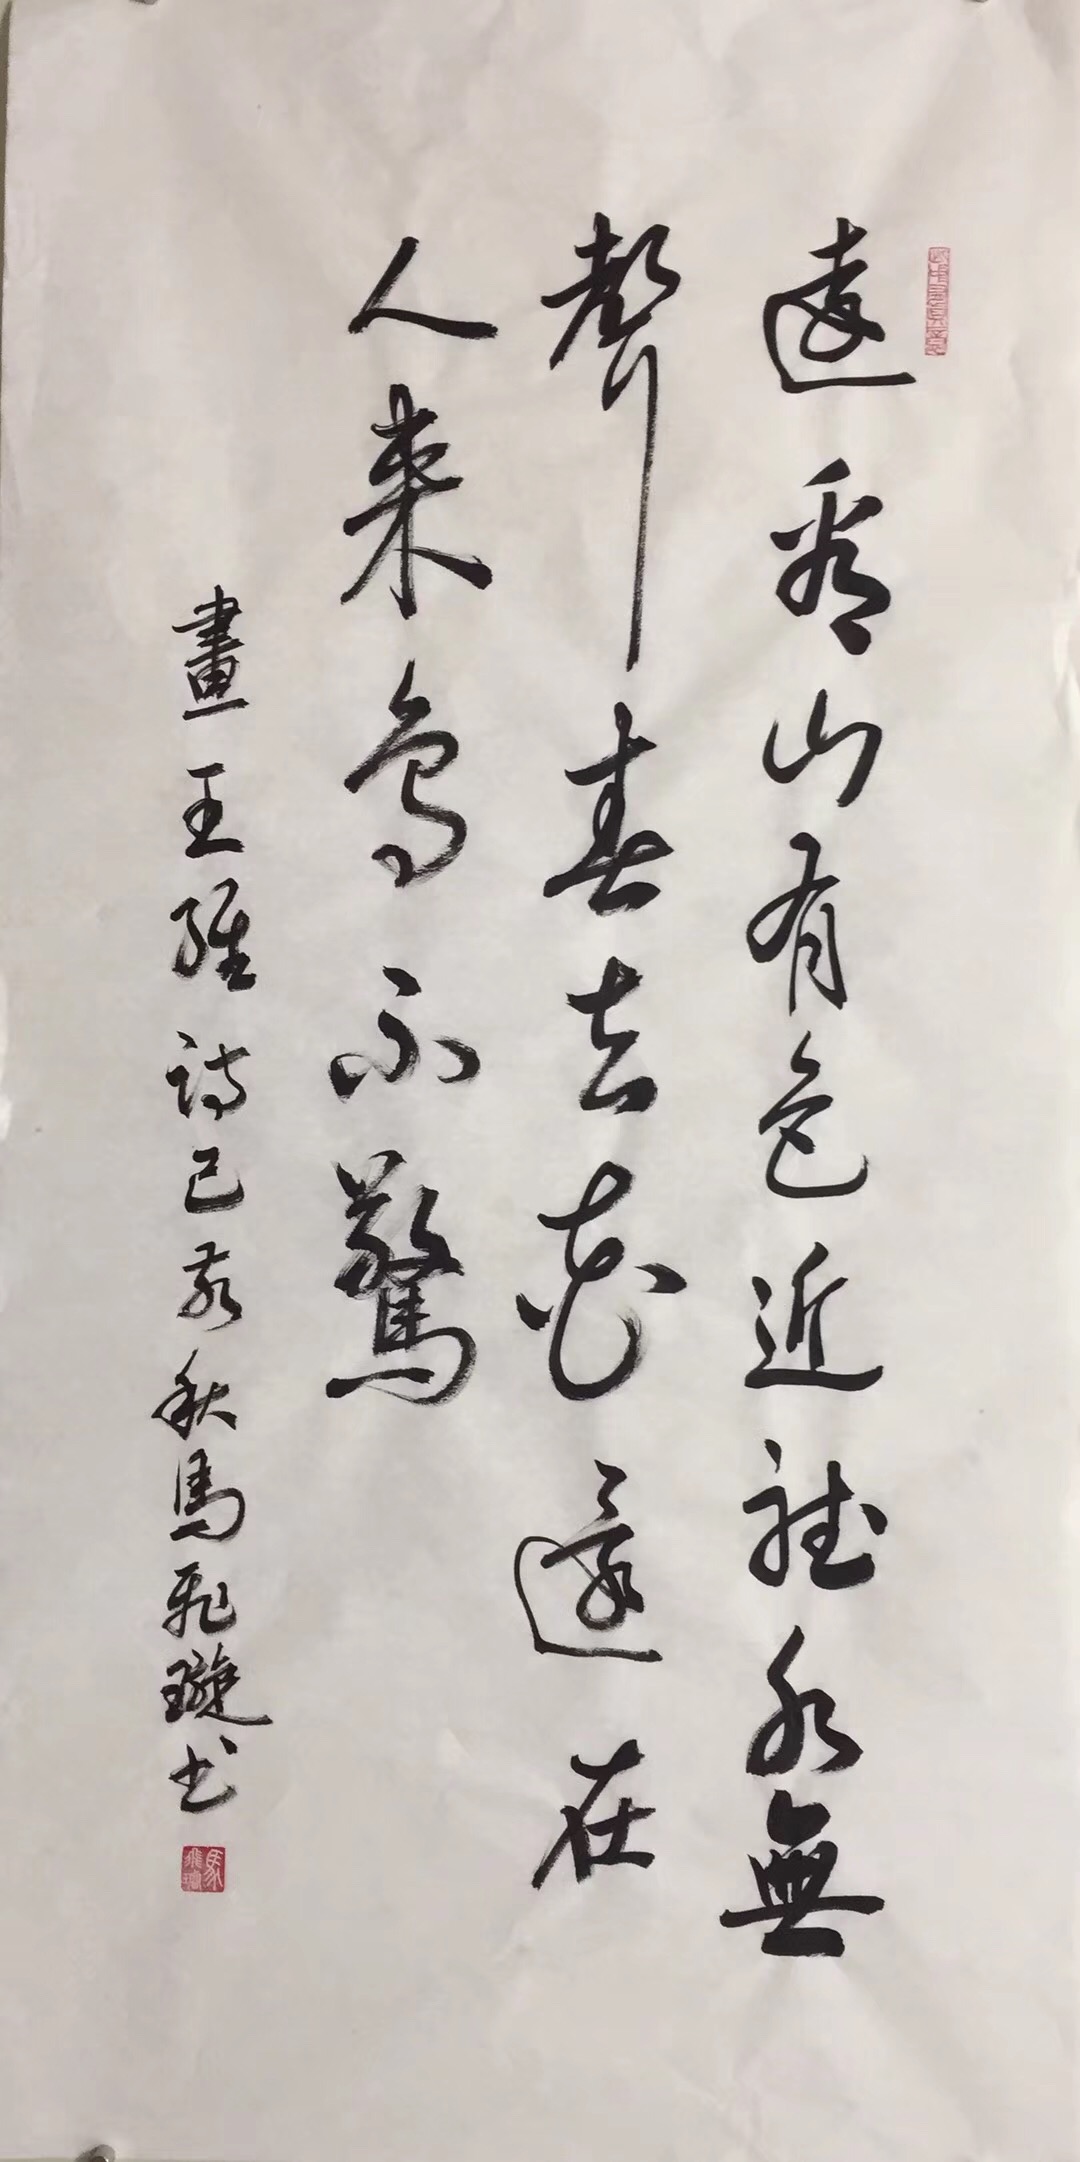 遠看山有色近聽水無
聲春去花還在
人來鳥不驚
畫王維詩己亥秋馬飛璇书